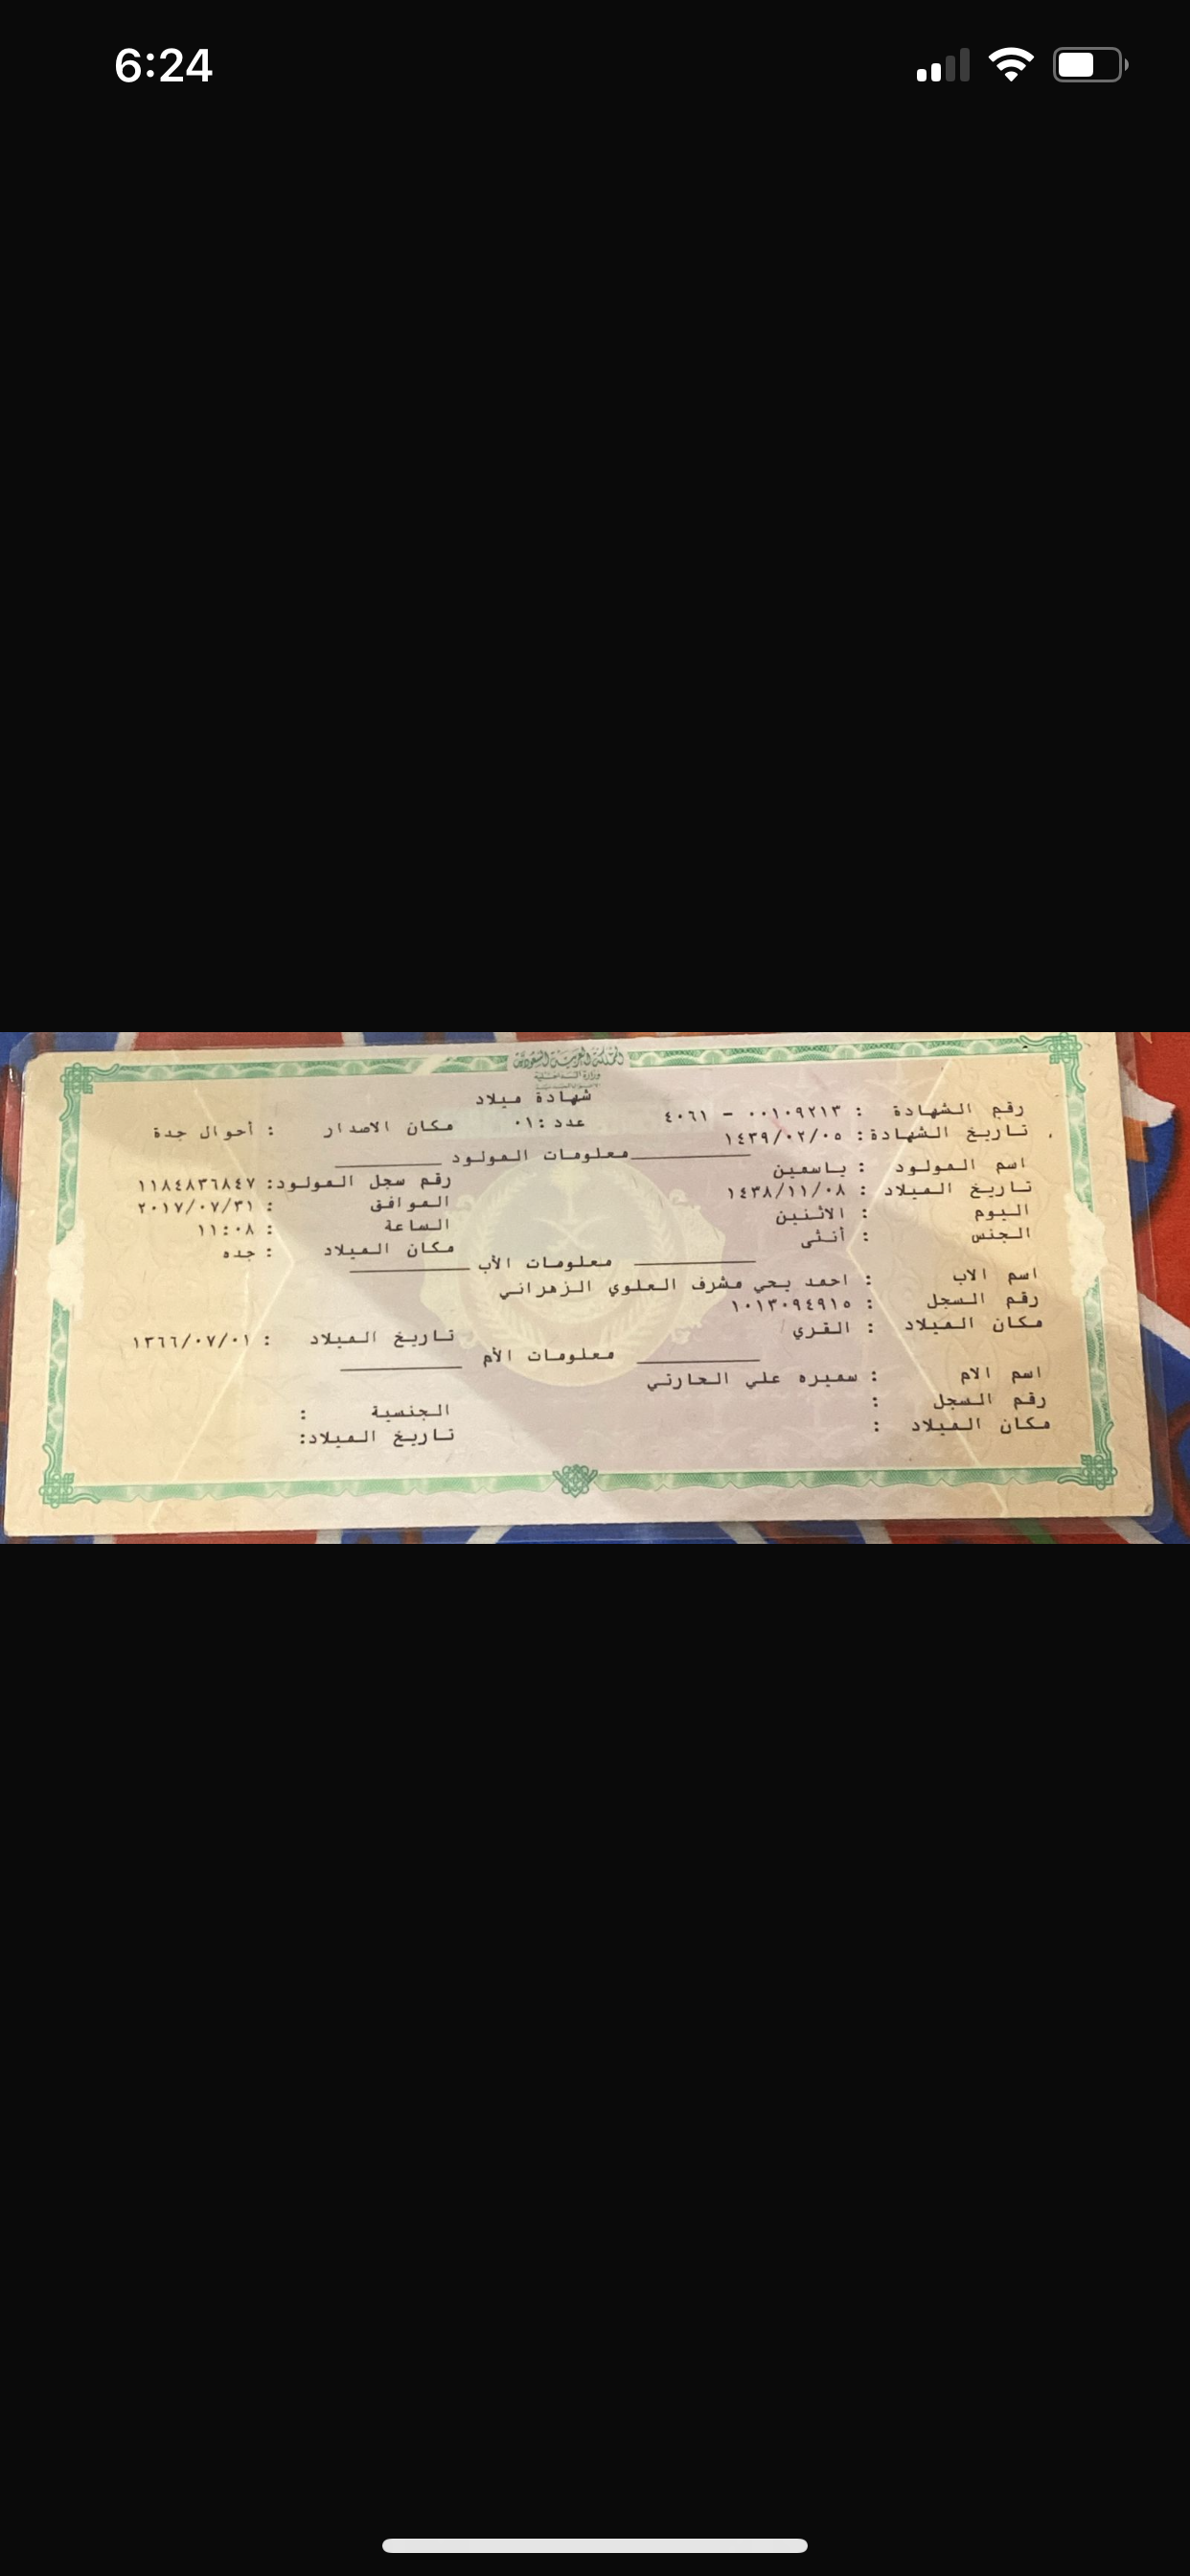 6:24
المملكة العربية السعودية
وزارة الداخلية
شهادة ميلاد
رقم الشهادة : ٠٠١٠٩٢١٣ - ٤٠٦١ عدد :٠١ مكان الاصدار : أحوال جدة
تاريخ الشهادة : ١٤٣٩/٠٢/٠٥
معلومات المولود
اسم المولود : ياسمين رقم سجل المولود: ١١٨٤٨٣٦٨٤٧
تاريخ الميلاد : ١٤٣٨/١١/٠٨ الموافق : ٢٠١٧/٠٧/٣١
اليوم : الاثنين الساعة : ١١:٠٨
الجنس : أنثى مكان الميلاد : جده
معلومات الأب
اسم الاب : احمد يحي مشرف العلوي الزهراني
رقم السجل : ١٠١٣٠٩٤٩١٥
مكان الميلاد : القري تاريخ الميلاد : ١٣٦٦/٠٧/٠١
معلومات الأم
اسم الام : سميره علي الحارثي
رقم السجل : الجنسية :
مكان الميلاد : تاريخ الميلاد: